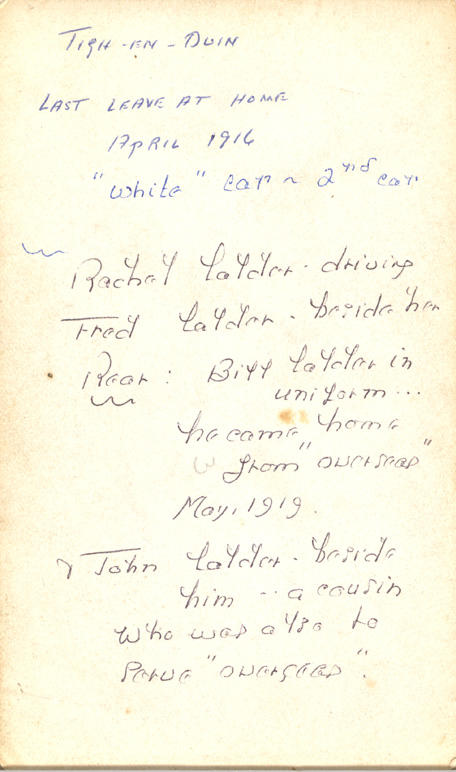 TIGH-EN-DUIN
LAST LEAVE AT HOME
APRIL 1916
"white" car ~ 2nd car
Rachel Calder - driving
Fred Calder - beside her
Rear: Bill Calder in
uniform...
he came home
from "overseas"
May, 1919.
John Calder - beside
him -- a cousin
who was also to
serve "overseas".